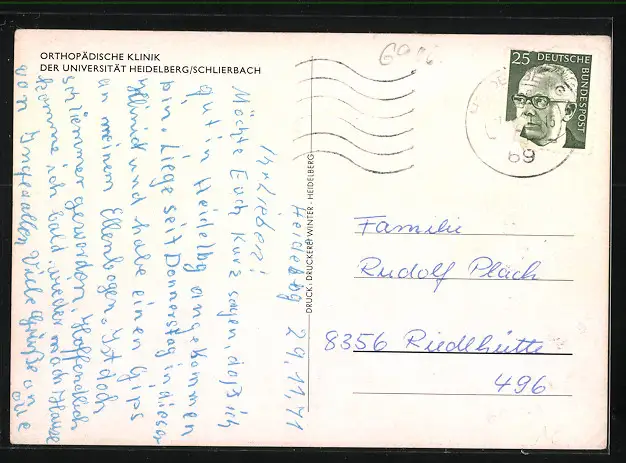 ORTHOPÄDISCHE KLINIK
DER UNIVERSITÄT HEIDELBERG/SCHLIERBACH
Heidelbg 29.11.71
Ihr Lieben!
Möchte Euch kurz sagen, daß ich
gut in Heidelbg angekommen
bin. Liege seit Donnerstag in dieser
Klinik und habe einen Gips
an meinem Ellenbogen. Ist doch
schlimmer geworden. Hoffentlich
komme ich bald wieder nach Hause
von Viele Grüße an
DRUCK: DRUCKEREI WINTER · HEIDELBERG
25 DEUTSCHE
BUNDESPOST
69
Familie
Rudolf Plach
8356 Riedlhütte
496